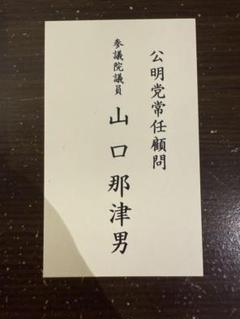 公明党常任顧問
参議院議員
山口那津男